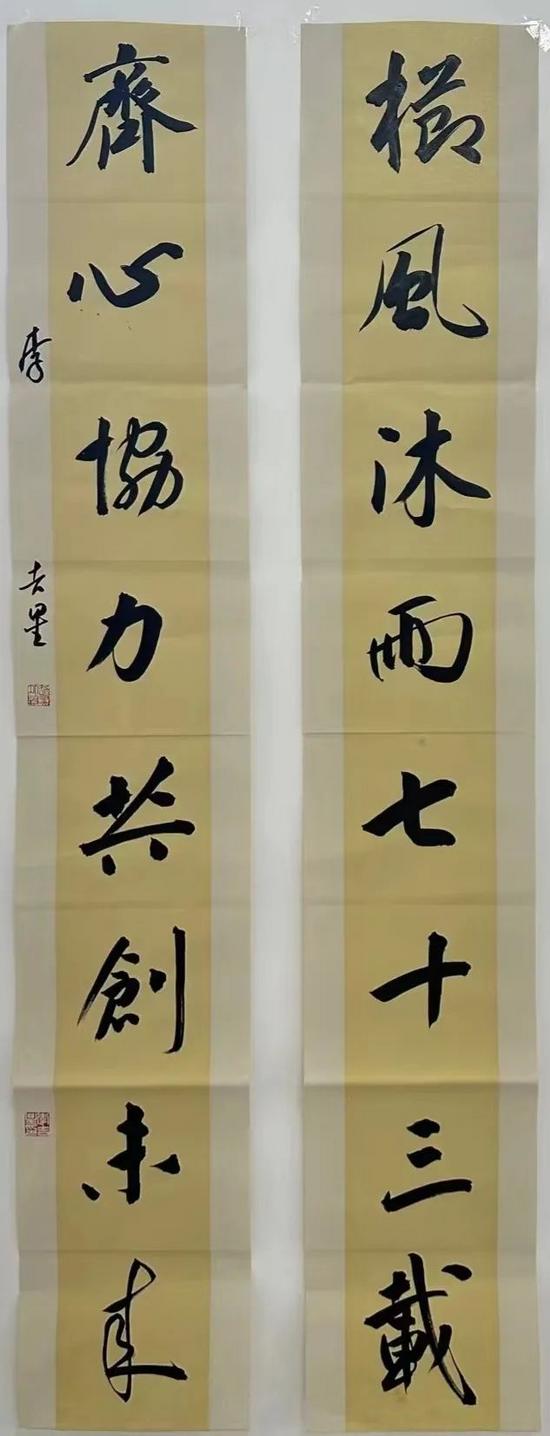 櫛風沐雨七十三載
齊心協力共創未來
李吉星